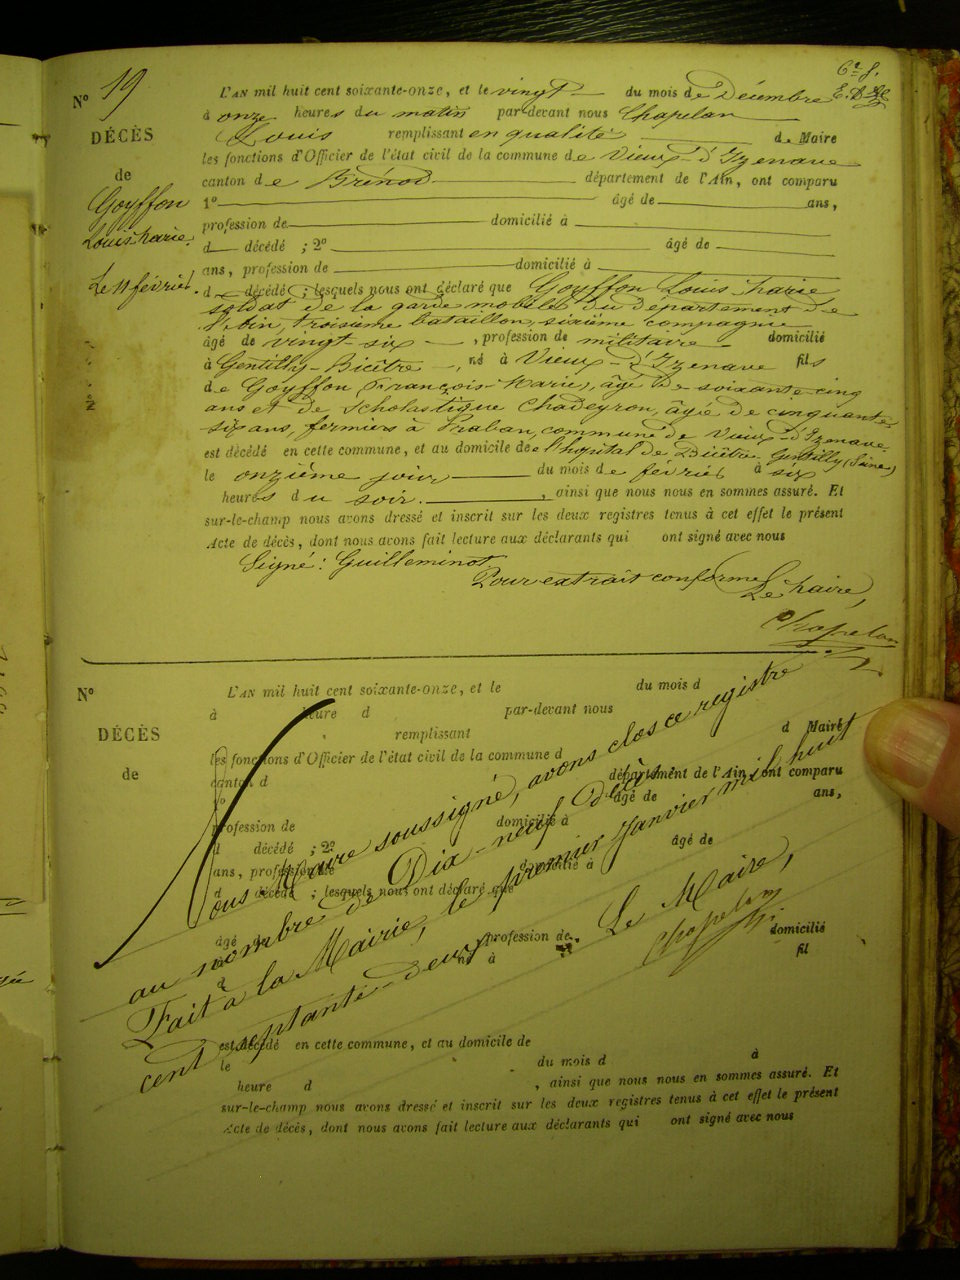 N° 19
DÉCÈS
de
Goyffon
Louis Marie.
Le 11 février.
6e f.
L'AN mil huit cent soixante-onze, et le vingt du mois de Décembre
à onze heures du matin par-devant nous Chapelan
Louis remplissant en qualité de Maire
les fonctions d'Officier de l'état civil de la commune de Vieux-d'Izenave
canton de Brénod département de l'Ain, ont comparu
1° âgé de ans,
profession de domicilié à
d décédé ; 2° âgé de
ans, profession de domicilié à
d décédé ; lesquels nous ont déclaré que Goyffon Louis Marie
soldat de la garde mobile du département de
l'Ain, troisième bataillon, sixième compagnie
âgé de vingt six , profession de militaire domicilié
à Gentilly-Bicêtre , né à Vieux-d'Izenave fils
de Goyffon François-Marie, âgé de soixante-cinq
ans et de Scholastique Chadeyron, âgée de cinquante
six ans, fermiers à Pralan, commune de Vieux-d'Izenave
est décédé en cette commune, et au domicile de l'hôpital de Bicêtre Gentilly (Seine)
le onzième jour du mois de février à six
heures du soir. , ainsi que nous nous en sommes assuré. Et
sur-le-champ nous avons dressé et inscrit sur les deux registres tenus à cet effet le présent
Acte de décès, dont nous avons fait lecture aux déclarants qui ont signé avec nous
Signé: Guilleminot
Pour extrait conforme
Le Maire,
Chapelan
N°
DÉCÈS
de
L'AN mil huit cent soixante-onze, et le du mois d
à heure d par-devant nous
remplissant d Maire
les fonctions d'Officier de l'état civil de la commune d
canton d département de l'Ain, ont comparu
1° âgé de ans,
profession de domicilié à
d décédé ; 2° âgé de
ans, profession de domicilié à
d décédé ; lesquels nous ont déclaré que
âgé de profession de domicilié
à né à fil
d
est décédé en cette commune, et au domicile de
le du mois d à
heure d , ainsi que nous nous en sommes assuré. Et
sur-le-champ nous avons dressé et inscrit sur les deux registres tenus à cet effet le présent
Acte de décès, dont nous avons fait lecture aux déclarants qui ont signé avec nous
Nous Maire soussigné, avons clos ce registre
au nombre de Dix-neuf Décès.
Fait à la Mairie, le premier Janvier mil huit
cent septante-deux
Le Maire,
Chapelan